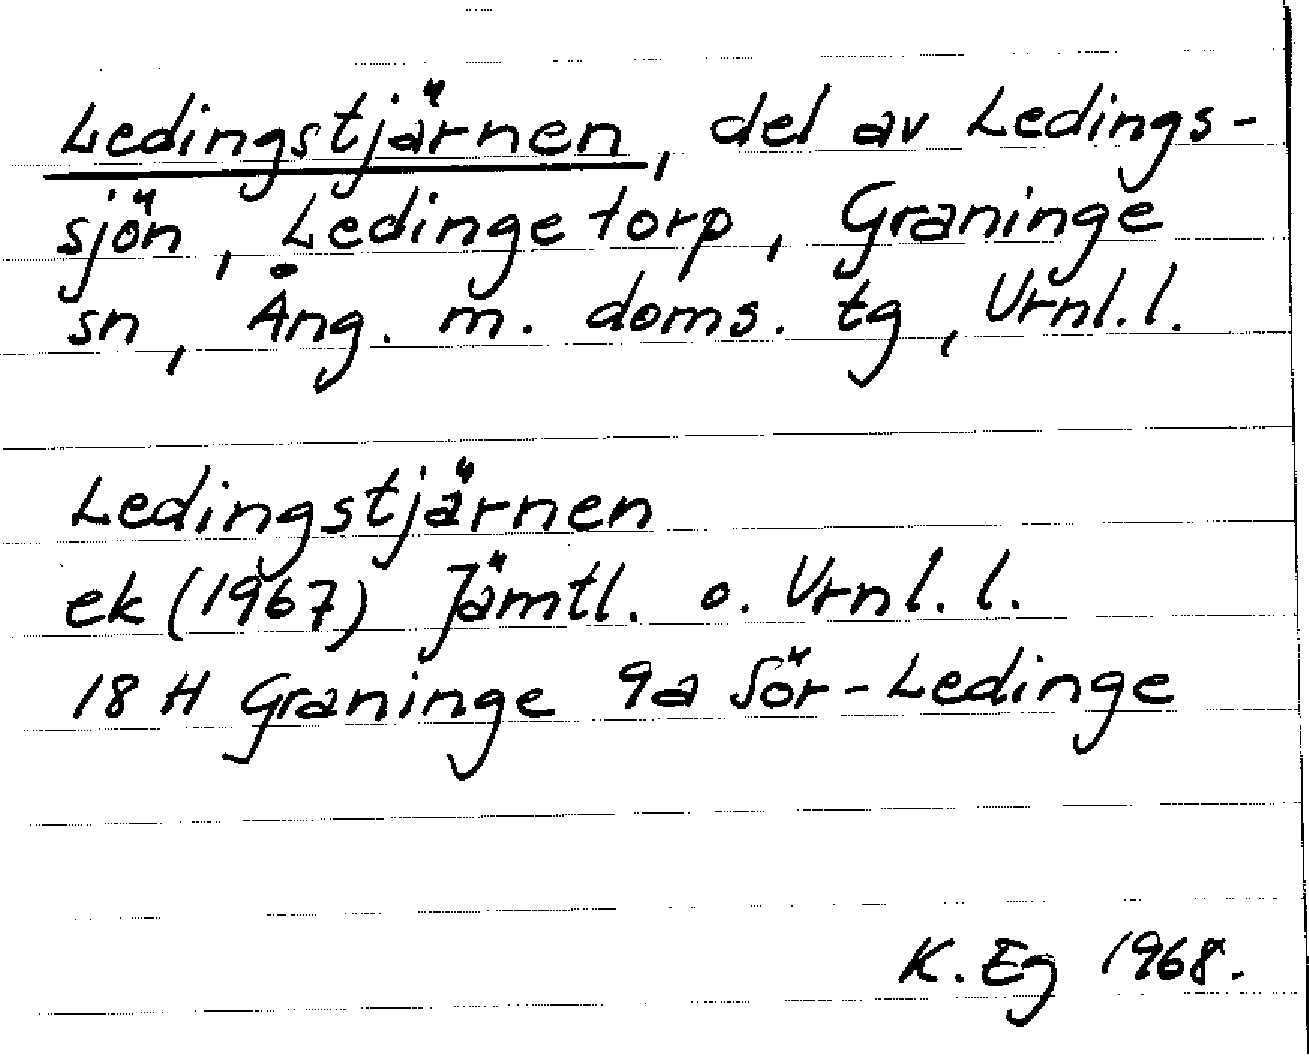 Ledingstjärnen, del av Ledings-
sjön, Ledingetorp, Graninge
sn, Ång. m. doms. tg, Vrnl.l.
Ledingstjärnen
ek (1967) Jämtl. o. Vrnl. l.
18 H Graninge 9a Sör-Ledinge
K. Eg 1968.